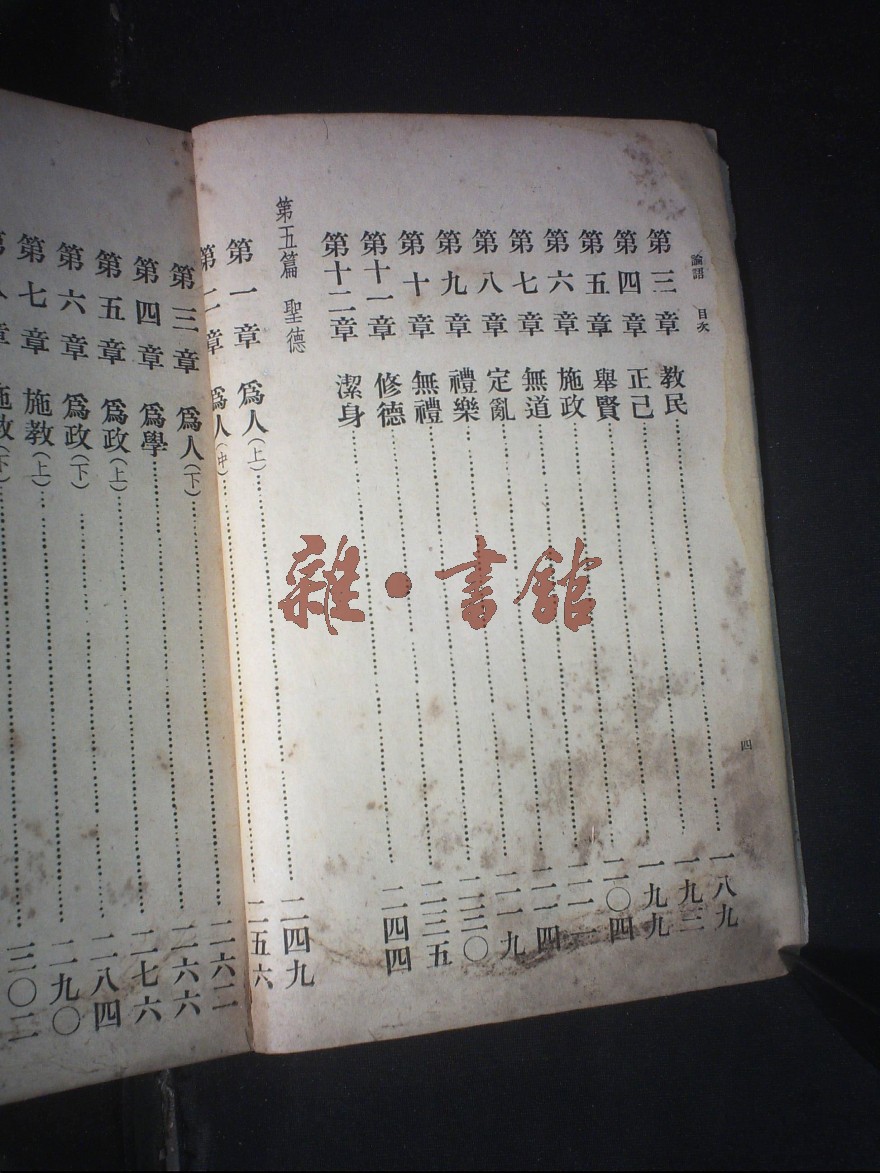 論語 目次
四
第三章 教民……一八九
第四章 正己……一九三
第五章 舉賢……一九九
第六章 施政……二〇四
第七章 無道……二一一
第八章 定亂……二一四
第九章 禮樂……二一九
第十章 無禮……二三〇
第十一章 修德……二三五
第十二章 潔身……二四四
第五篇 聖德
第一章 爲人(上)……二四九
第二章 爲人(中)……二五六
第三章 爲人(下)……二六二
第四章 爲學……二六六
第五章 爲政(上)……二七六
第六章 爲政(下)……二八四
第七章 施教(上)……二九〇
第八章 施教(下)……三〇二
雜·書館